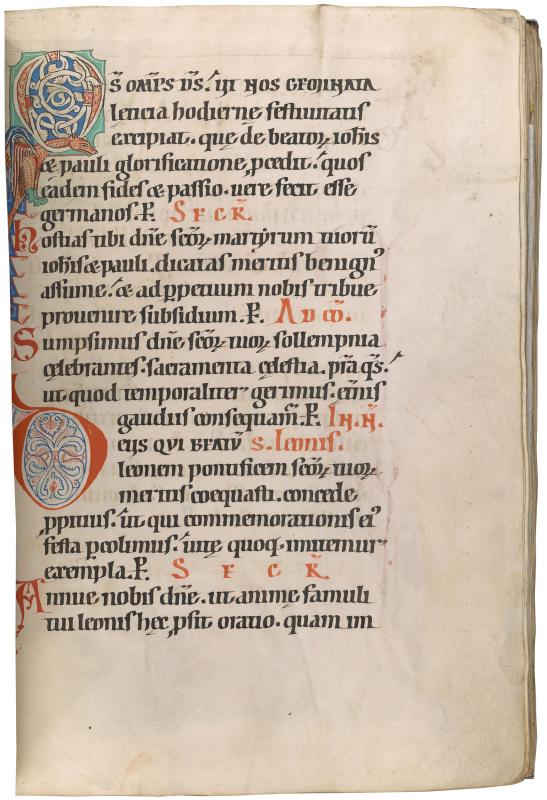 85
Qs̄ om̄ps d̄s. ut nos geminata
leticia hodierne festiuitatis
excipiat. que de beatoꝝ ioh̄is
& pauli glorificatione ꝓcedit. quos
eadem fides & passio. uere fecit esse
germanos. P̄. SECR̄.
hostias tibi dn̄e sc̄oꝝ martyrum tuorū
ioh̄is & pauli. dicatas meritis benignꝰ
assume. & ad ꝑpetuum nobis tribue
prouenire subsidium. P̄. AD CŌ.
Sumpsimus dn̄e sc̄oꝝ tuoꝝ sollempnia
cęlebrantes. sacramenta cęlestia. pr̄a q̄s.
ut quod temporaliter gerimus. et̄nis
gaudiis consequam̄. P̄. IN. N̄.
Ds qui beatū S. Leonis.
leonem pontificem sc̄oꝝ tuoꝝ
meritis coequasti. concede
ꝓpitius. ut qui commemorationis eiꝰ
festa ꝑcolimus. uitę quoq. imitemur
exempla. P̄. SECR̄.
Annue nobis dn̄e. ut anime famuli
tui leonis hec ꝓsit oratio. quam im